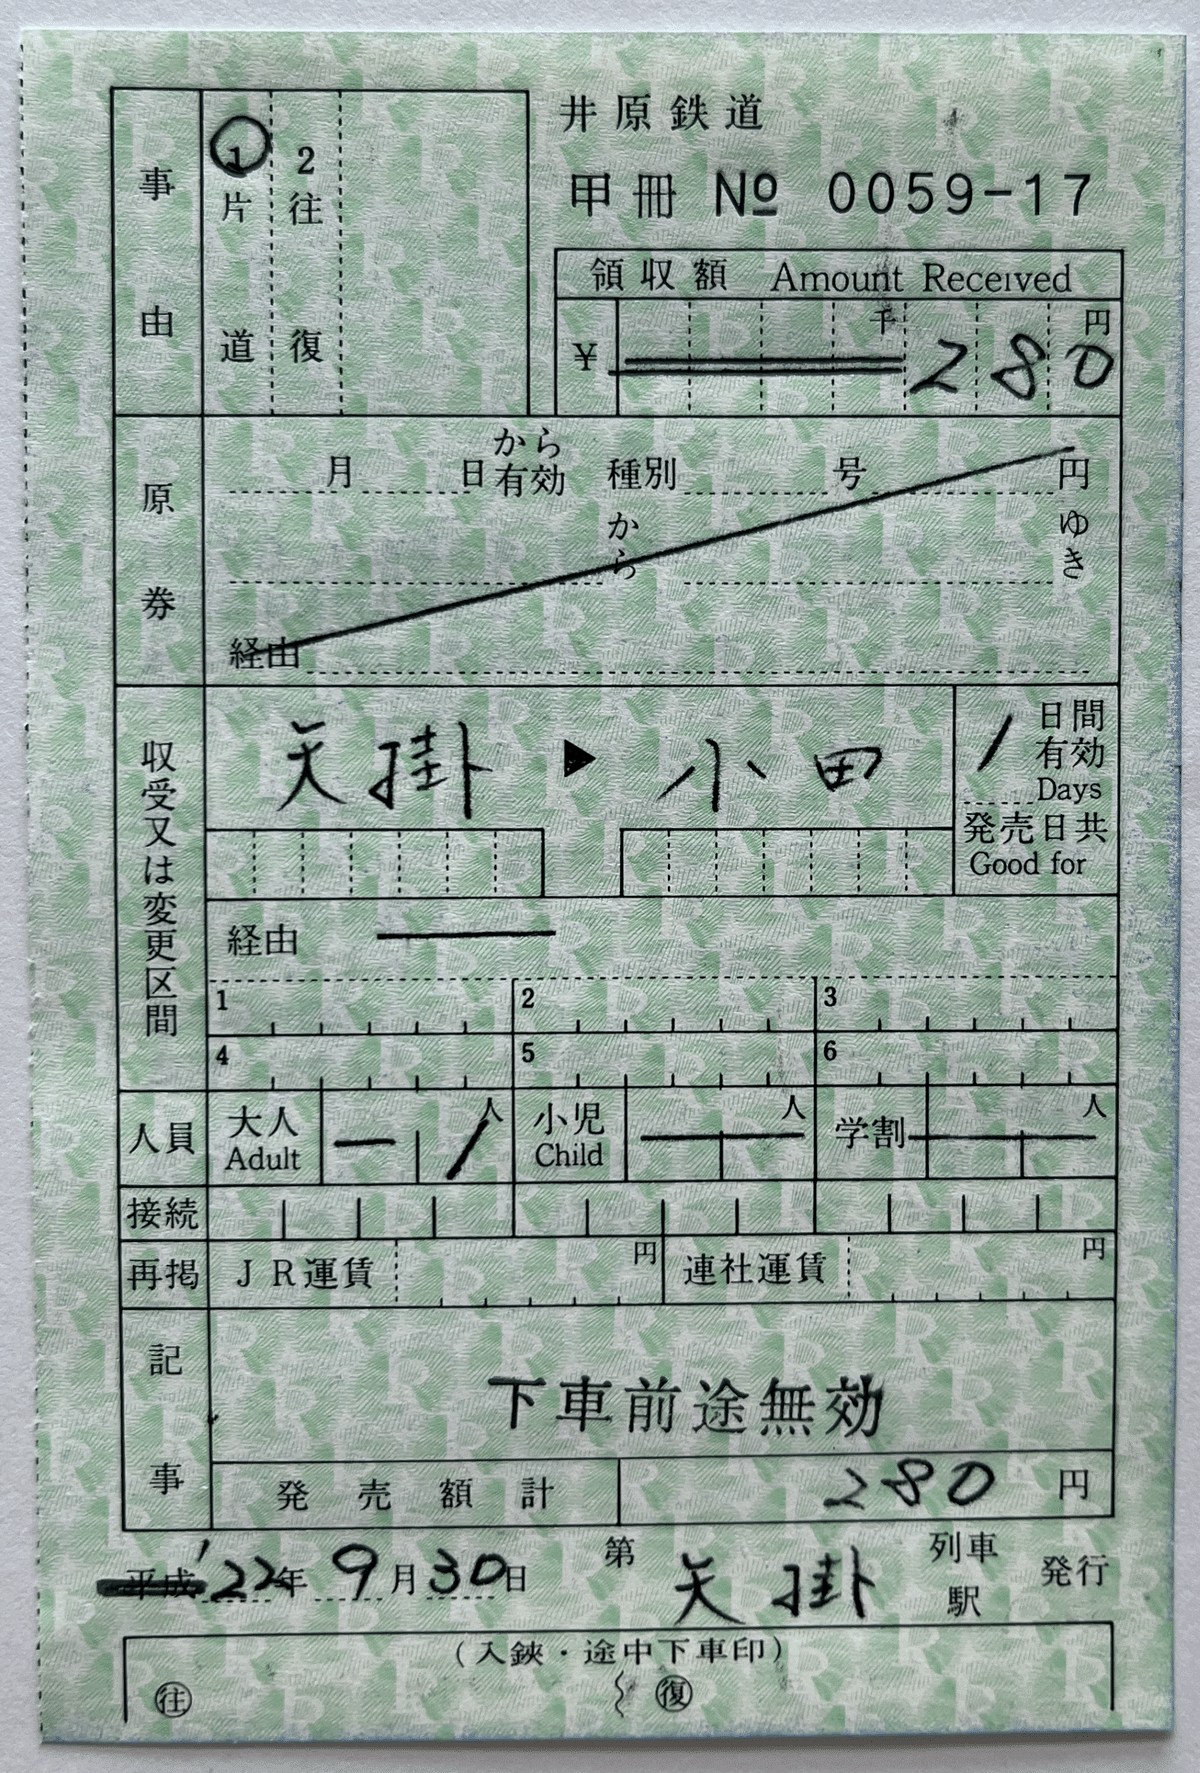 井原鉄道
甲冊 № 0059-17
事由
1 片道
2 往復
領収額 Amount Received
¥ 千 円
280
原券
月 日 から有効 種別 号 円
から ゆき
経由
収受又は変更区間
矢掛 ▶ 小田
1 日間有効 Days
発売日共 Good for
経由
1 2 3
4 5 6
人員 大人 Adult 1 人 小児 Child 人 学割 人
接続
再掲 JR運賃 円 連社運賃 円
記事
下車前途無効
発売額計 280 円
平成 '22年 9月 30日 第 矢掛 列車 駅 発行
(入鋏・途中下車印)
往 復